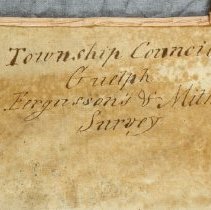 Township Counci
Guelph
Fergusson's & Mill
Survey